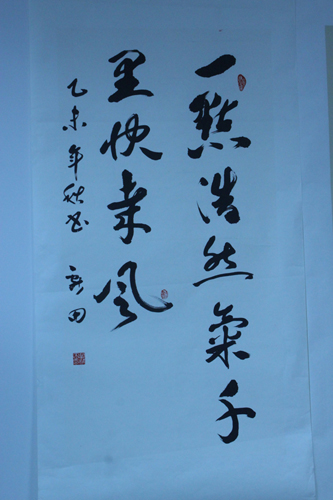 一點浩然氣千
里快哉風
乙未年秋書 田